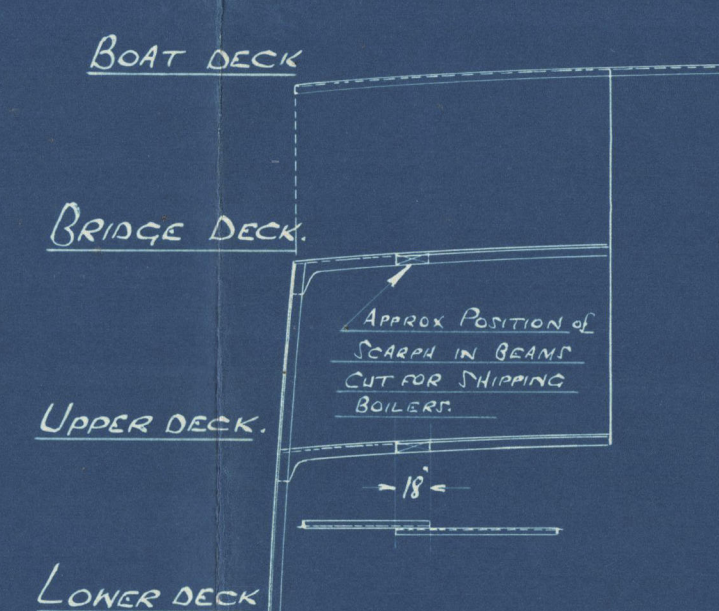 BOAT DECK
BRIDGE DECK.
APPROX POSITION of
SCARPH IN BEAMS
CUT FOR SHIPPING
BOILERS.
UPPER DECK.
18"
LOWER DECK